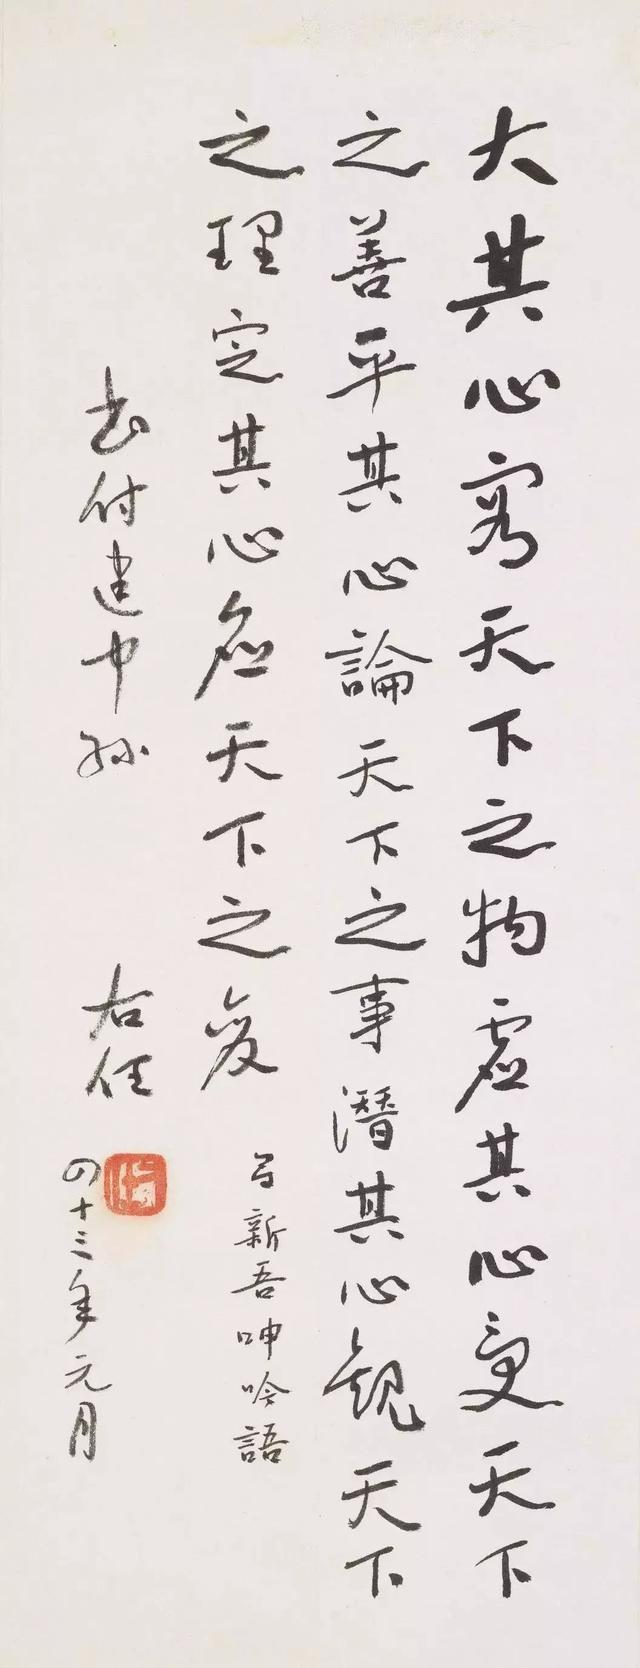 大其心容天下之物虛其心受天下
之善平其心論天下之事潛其心觀天下
之理定其心應天下之變
呂新吾呻吟語
書付建中孫
右任
四十三年元月